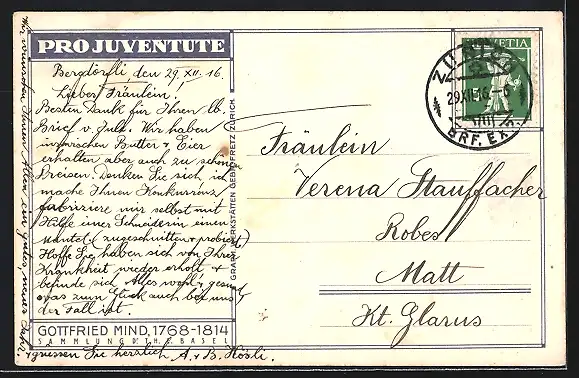 PRO JUVENTUTE
Bergdörfli, den 29. XII. 16
Liebes Fräulein!
Besten Dank für Ihren lb.
Brief v. Juli. Wir haben
inzwischen Butter & Eier
erhalten aber auch zu schönen
Preisen. Denken Sie sich, ich
mache Ihnen Konkurrenz
fabriziere mir selbst mit
Hilfe einer Schneiderin einen
Mantel (zugeschnitten & probiert)
Hoffe Sie haben sich von Ihrer
Krankheit wieder erholt &
befinde sich Alles wohl & gesund
was zum Glück auch bei uns
der Fall ist.
GOTTFRIED MIND, 1768-1814
SAMMLUNG DR TH. E. BASEL
Wir wünschen Ihnen Allen ein gutes, neues Jahr.
& grüssen Sie herzlich A. & B. Hösli.
GRAPH. WERKSTÄTTEN GEBR. FRETZ ZÜRICH
HELVETIA
29.XII.16.-6
BRF. EXP.
Fräulein
Verena Stauffacher
Robes
Matt
Kt. Glarus